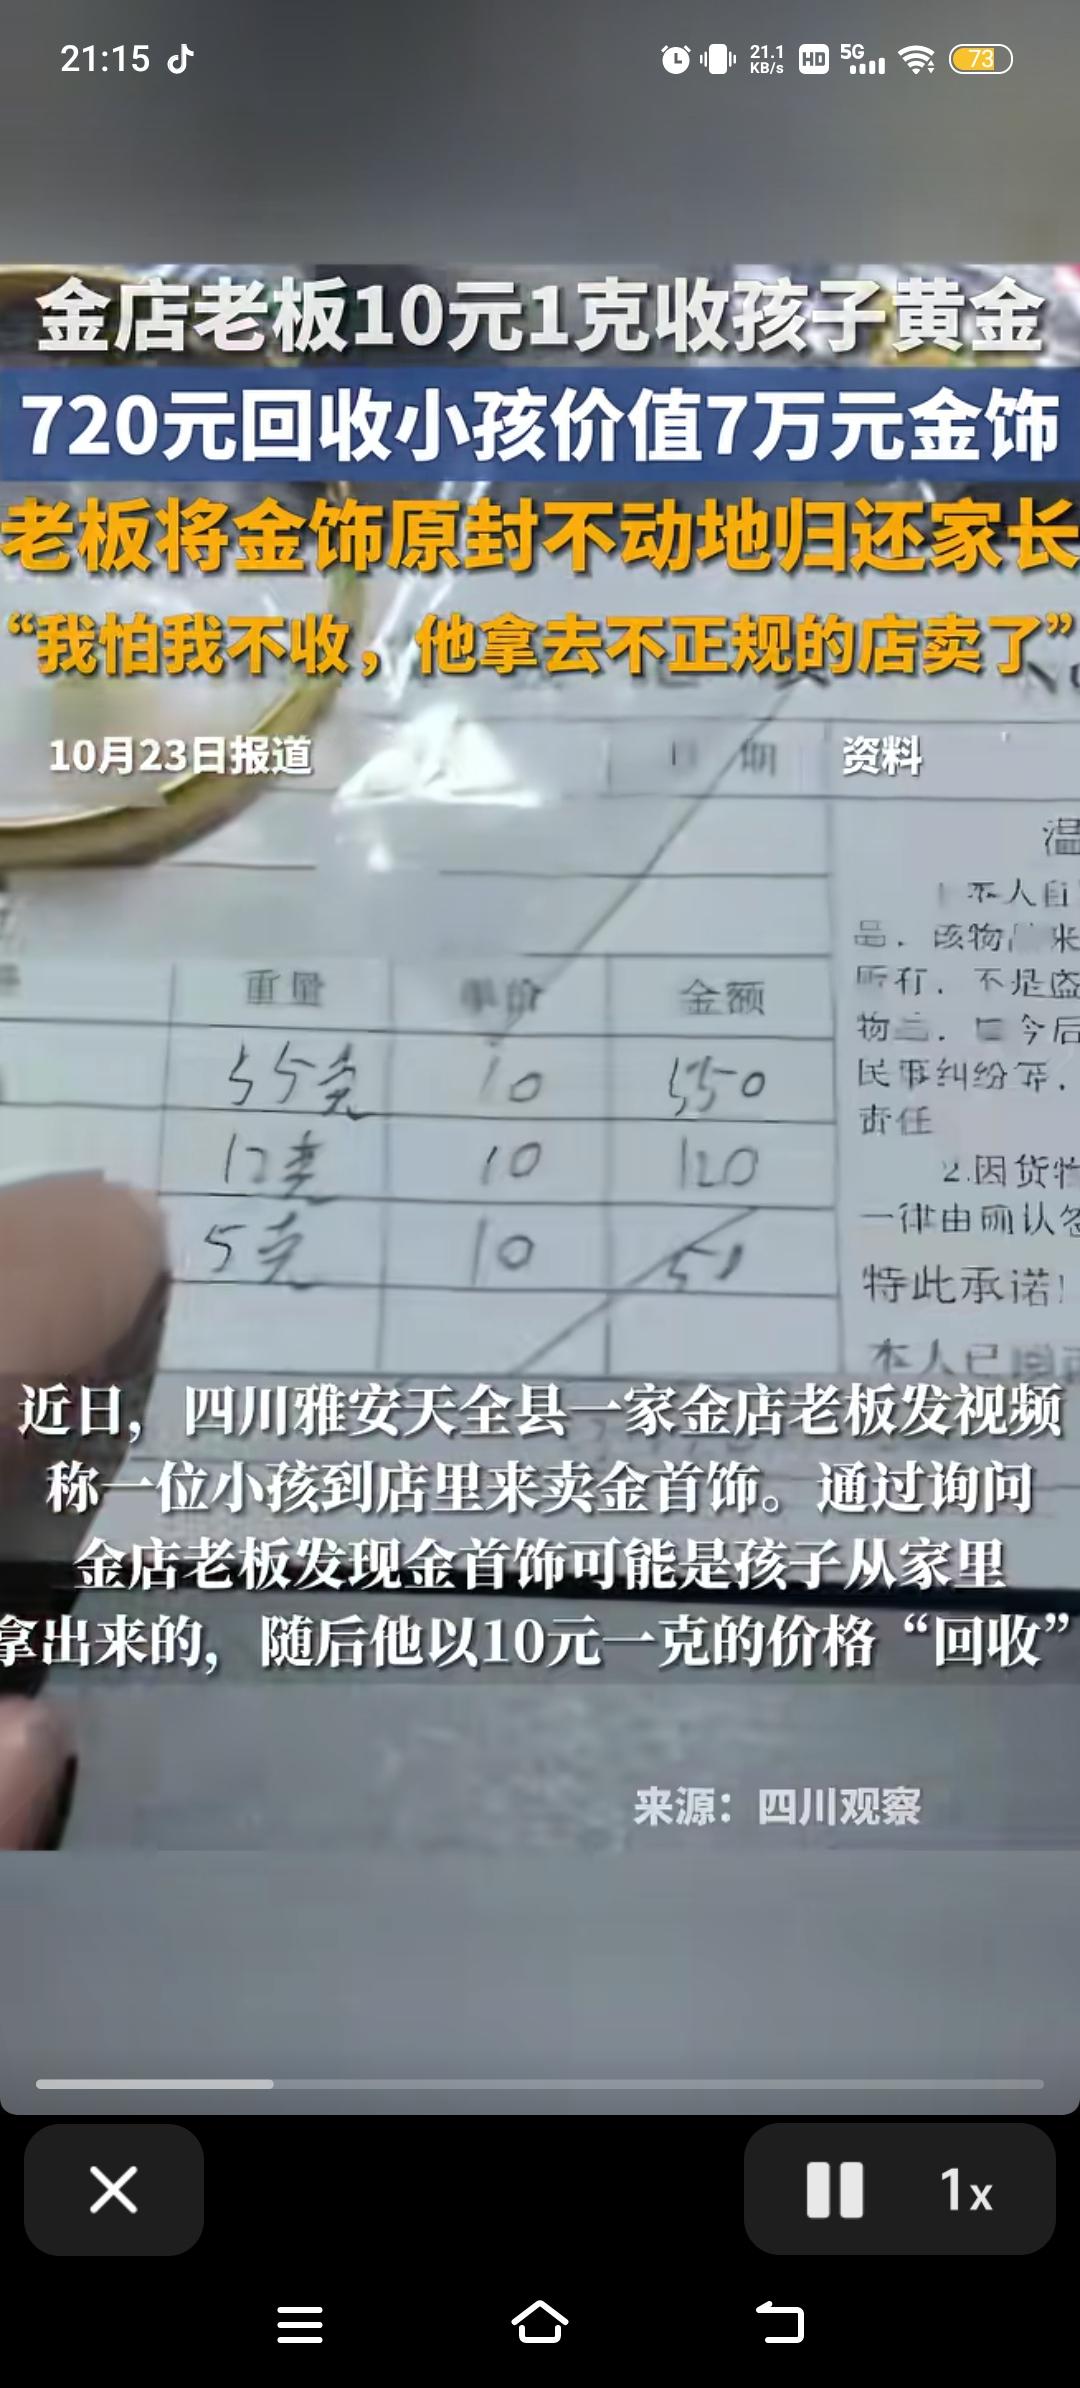 21:15
21.1 KB/s HD 5G 73
金店老板10元1克收孩子黄金
720元回收小孩价值7万元金饰
老板将金饰原封不动地归还家长
“我怕我不收，他拿去不正规的店卖了”
10月23日报道
资料
日期
重量 单价 金额
55克 10 550
12克 10 120
5克 10
本人自
品．该物品来
所有．不是盗
今后
民事纠纷等．
责任
2.因货
一律由 确认
特此承诺！
本人已
近日，四川雅安天全县一家金店老板发视频
称一位小孩到店里来卖金首饰。通过询问
金店老板发现金首饰可能是孩子从家里
拿出来的，随后他以10元一克的价格“回收”
来源：四川观察
1x